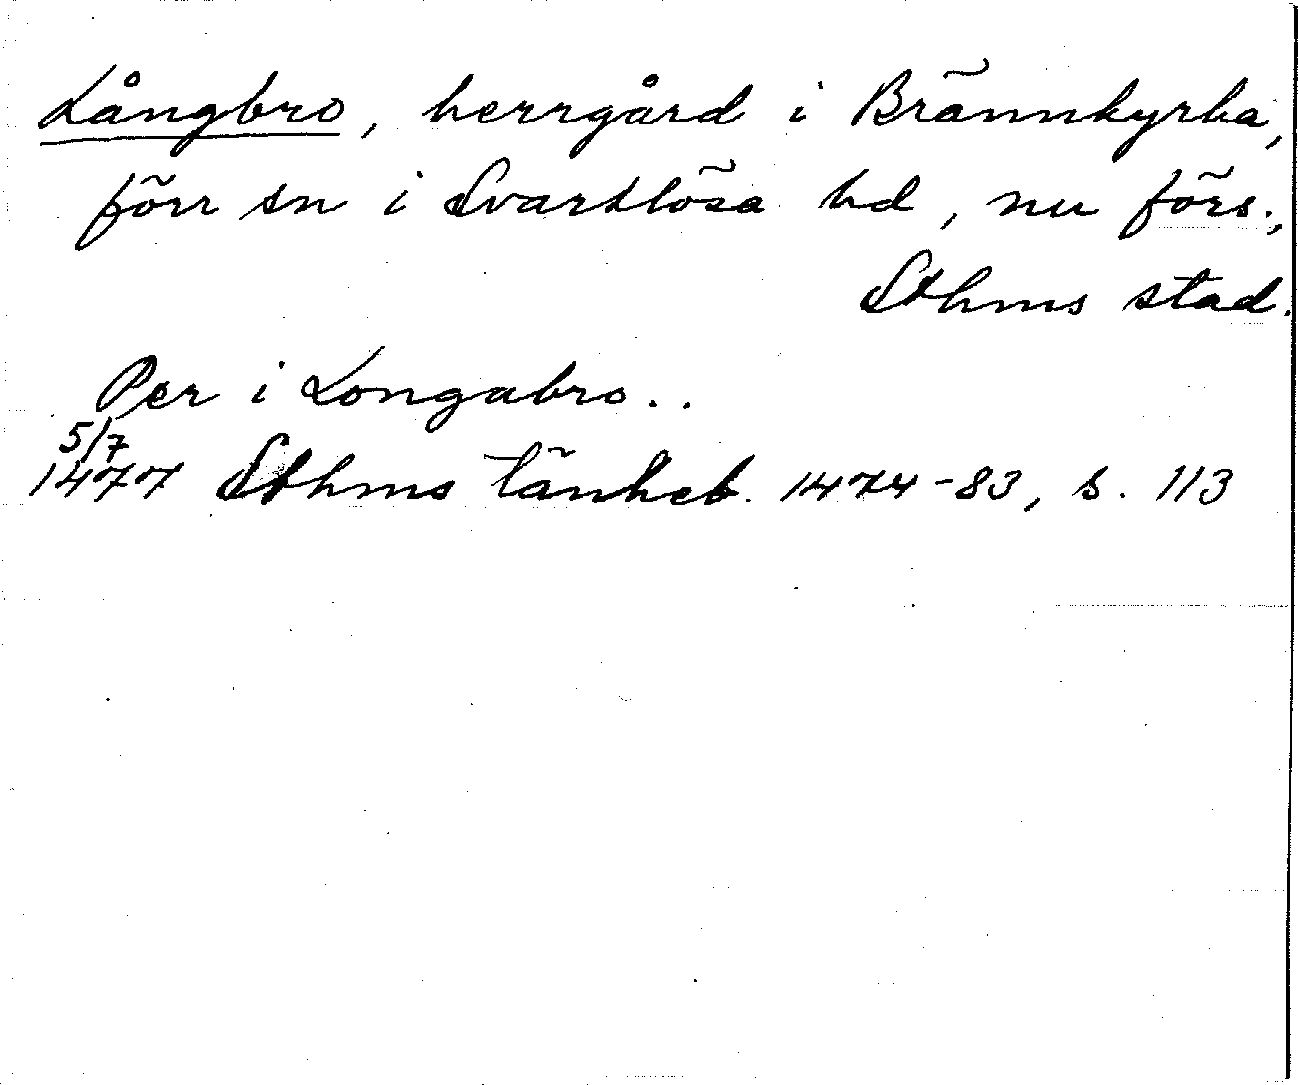 Långbro, herrgård i Brännkyrka,
förr sn i Svartlösa hd, nu förs.,
Sthms stad.
Per i Longabro..
5/7
1477 Sthms tänkeb. 1474-83, s. 113